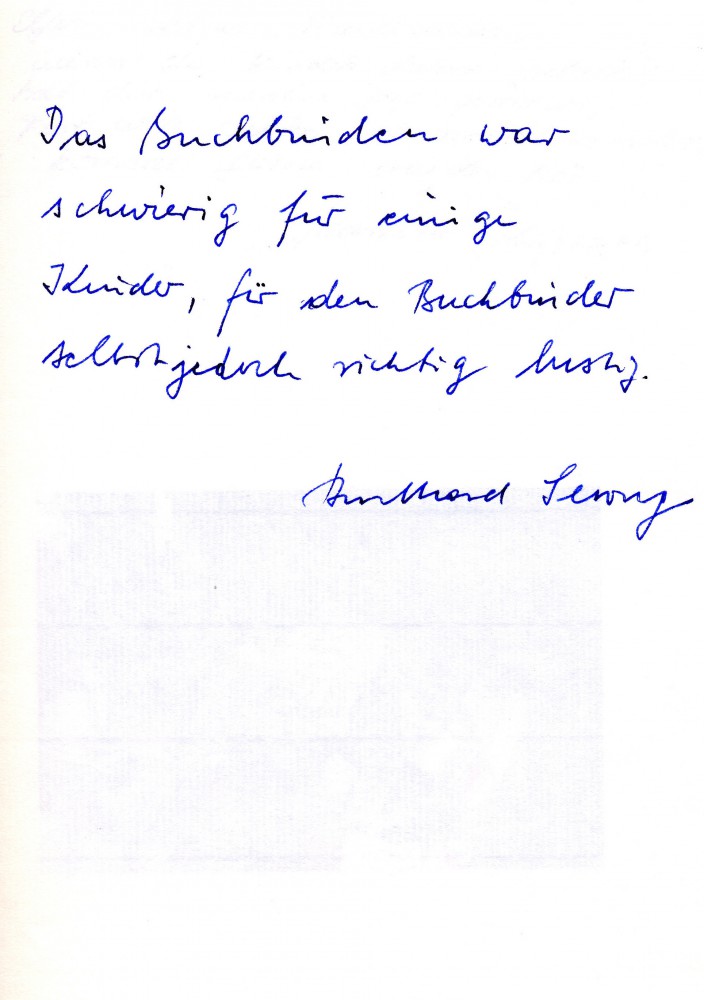 Das Buchbinden war
schwierig für einige
Kinder, für den Buchbinder
selbst jedoch richtig lustig.
Burkhard